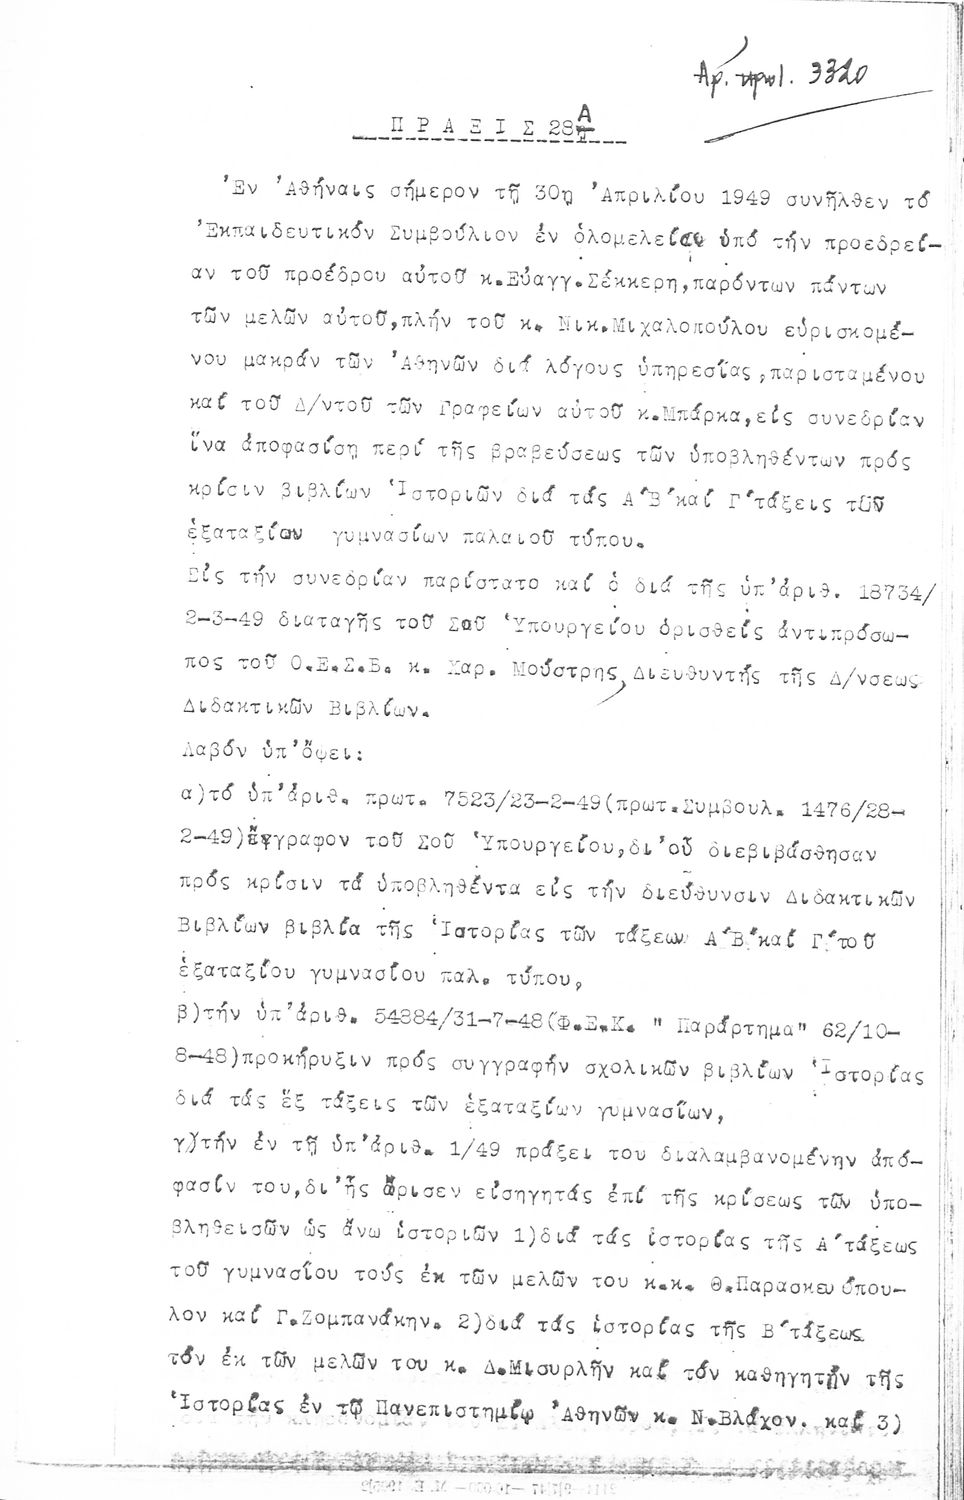 Ἀρ. πρωτ. 3320
Π Ρ Α Ξ Ι Σ 28Α
Ἐν Ἀθήναις σήμερον τῇ 30ῃ Ἀπριλίου 1949 συνῆλθεν τό
Ἐκπαιδευτικόν Συμβούλιον ἐν ὁλομελείᾳ ὑπό τήν προεδρεί-
αν τοῦ προέδρου αὐτοῦ κ.Εὐαγγ.Σέκκερη,παρόντων πάντων
τῶν μελῶν αὐτοῦ,πλήν τοῦ κ. Νικ.Μιχαλοπούλου εὑρισκομέ-
νου μακράν τῶν Ἀθηνῶν διά λόγους ὑπηρεσίας,παρισταμένου
καί τοῦ Δ/ντοῦ τῶν Γραφείων αὐτοῦ κ.Μπάρκα,εἰς συνεδρίαν
ἵνα ἀποφασίσῃ περί τῆς βραβεύσεως τῶν ὑποβληθέντων πρός
κρίσιν βιβλίων Ἱστοριῶν διά τάς Α΄Β΄καί Γ΄τάξεις τῶν
ἑξαταξίων γυμνασίων παλαιοῦ τύπου.
Εἰς τήν συνεδρίαν παρίστατο καί ὁ διά τῆς ὑπ'ἀριθ. 18734/
2-3-49 διαταγῆς τοῦ Σοῦ Ὑπουργείου ὁρισθείς ἀντιπρόσω-
πος τοῦ Ο.Ε.Σ.Β. κ. Χαρ. Μούστρης, Διευθυντής τῆς Δ/νσεως
Διδακτικῶν Βιβλίων.
Λαβόν ὑπ'ὄψει:
α)τό ὑπ'ἀριθ. πρωτ. 7523/23-2-49(πρωτ.Συμβουλ. 1476/28-
2-49)ἔγγραφον τοῦ Σοῦ Ὑπουργείου,δι'οὗ διεβιβάσθησαν
πρός κρίσιν τά ὑποβληθέντα εἰς τήν διεύθυνσιν Διδακτικῶν
Βιβλίων βιβλία τῆς Ἱστορίας τῶν τάξεων Α΄Β΄καί Γ΄τοῦ
ἑξαταξίου γυμνασίου παλ. τύπου,
β)τήν ὑπ'ἀριθ. 54884/31-7-48(Φ.Ε.Κ. " Παράρτημα" 62/10-
8-48)προκήρυξιν πρός συγγραφήν σχολικῶν βιβλίων Ἱστορίας
διά τάς ἕξ τάξεις τῶν ἑξαταξίων γυμνασίων,
γ)τήν ἐν τῇ ὑπ'ἀριθ. 1/49 πράξει του διαλαμβανομένην ἀπό-
φασίν του,δι'ἧς ὥρισεν εἰσηγητάς ἐπί τῆς κρίσεως τῶν ὑπο-
βληθεισῶν ὡς ἄνω ἱστοριῶν 1)διά τάς ἱστορίας τῆς Α΄τάξεως
τοῦ γυμνασίου τούς ἐκ τῶν μελῶν του κ.κ. Θ.Παρασκευόπου-
λον καί Γ.Ζομπανάκην. 2)διά τάς ἱστορίας τῆς Β΄τάξεως
τόν ἐκ τῶν μελῶν του κ. Δ.Μισυρλῆν καί τόν καθηγητήν τῆς
Ἱστορίας ἐν τῷ Πανεπιστημίῳ Ἀθηνῶν κ. Ν.Βλάχον. καί 3)